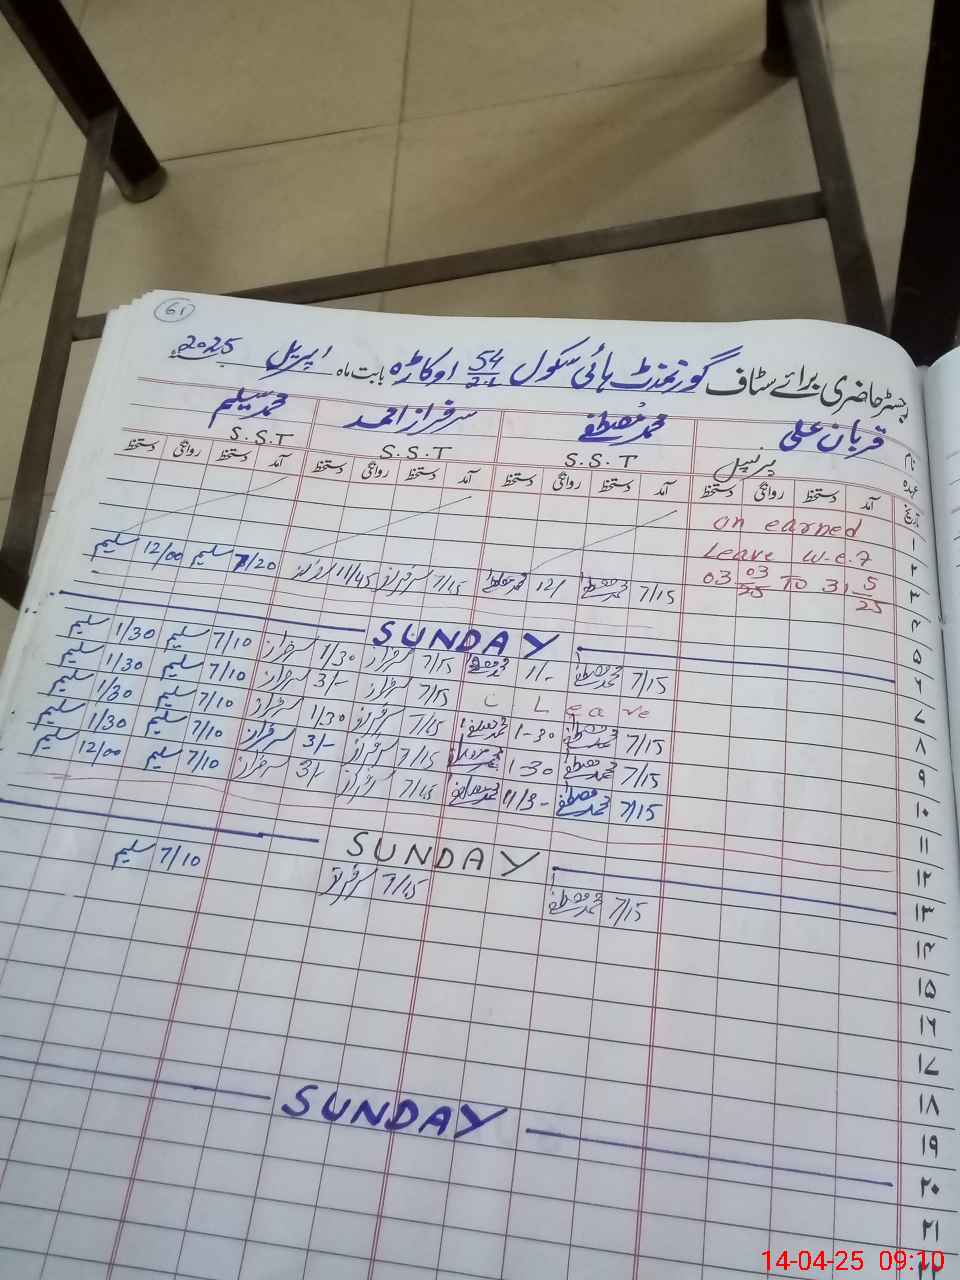 61
رجسٹر حاضری برائے سٹاف گورنمنٹ ہائی سکول 54 اوکاڑہ بابت ماہ اپریل 2025
نام قربان علی محمد مصطفے سرفراز احمد محمد سلیم
عہدہ پرنسپل S.S.T S.S.T S.S.T
تاریخ آمد دستخط روانگی دستخط آمد دستخط روانگی دستخط آمد دستخط روانگی دستخط آمد دستخط روانگی دستخط
۱ on earned
۲ Leave w.e.f
۳ 03 03/25 To 31 5/25 7/15 محمد مصطفے 12/ محمد مصطفے 7/45 سرفراز 11/45 سرفراز 7/20 سلیم 12/00 سلیم
۴
۵
۶ SUNDAY
۷ 7/15 محمد مصطفے 1/- محمد مصطفے 7/15 سرفراز 1/30 سرفراز 7/10 سلیم 1/30 سلیم
۸ C Leave 7/15 سرفراز 3/- سرفراز 7/10 سلیم 1/30 سلیم
۹ 7/15 محمد مصطفے 1-30 محمد مصطفے 7/15 سرفراز 1/30 سرفراز 7/10 سلیم 1/30 سلیم
۱۰ 7/15 محمد مصطفے 1-30 محمد مصطفے 7/15 سرفراز 3/- سرفراز 7/10 سلیم 1/30 سلیم
۱۱ 7/15 محمد مصطفے محمد مصطفے 7/45 سرفراز 3/- سرفراز 7/10 سلیم 12/00 سلیم
۱۲
۱۳ SUNDAY
۱۴ 7/15 محمد مصطفے 7/15 سرفراز 7/10 سلیم
۱۵
۱۶
۱۷
۱۸
۱۹
۲۰ SUNDAY
۲۱
۲۲
14-04-25 09:10